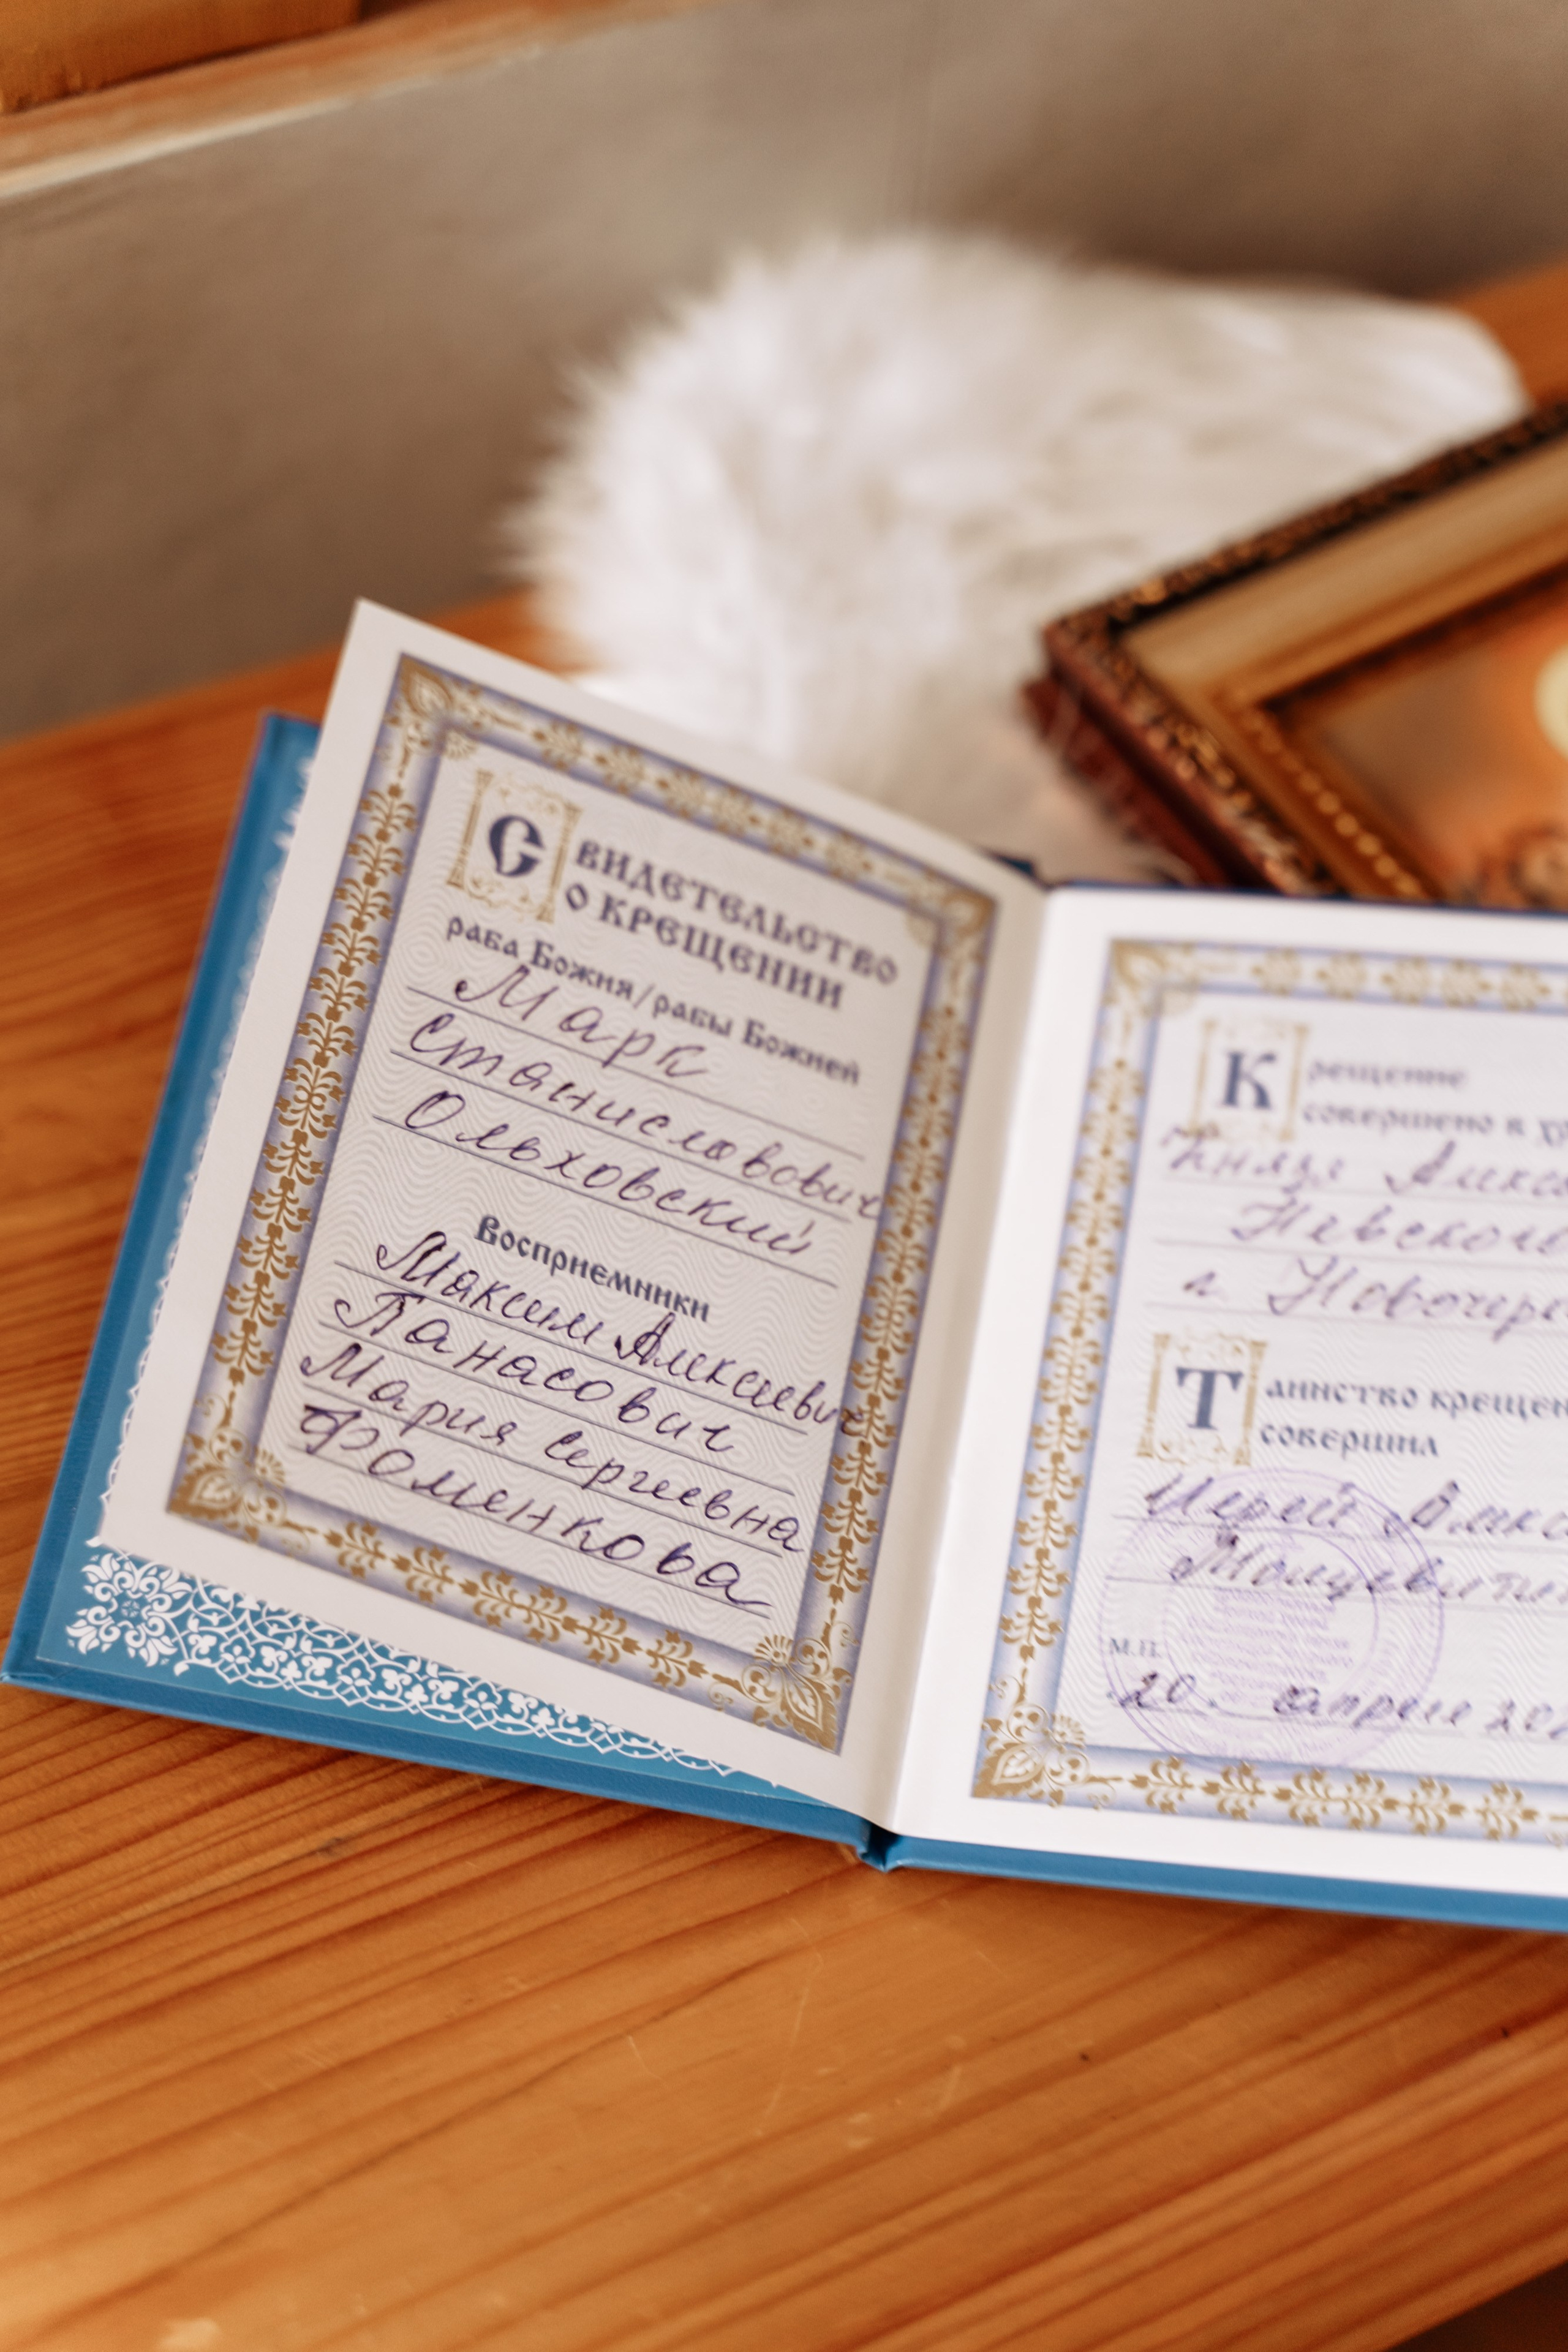 Свидетельство
о крещении
раба Божия/рабы Божией
Марк
Станиславович
Ольховский
Восприемники
Максим Алексеевич
Панасович
Мария Сергеевна
Фоменкова
Крещение
совершено в
Князя
Невского
г.
Таинство
совершил
Иерей
М.П.
20. апреля